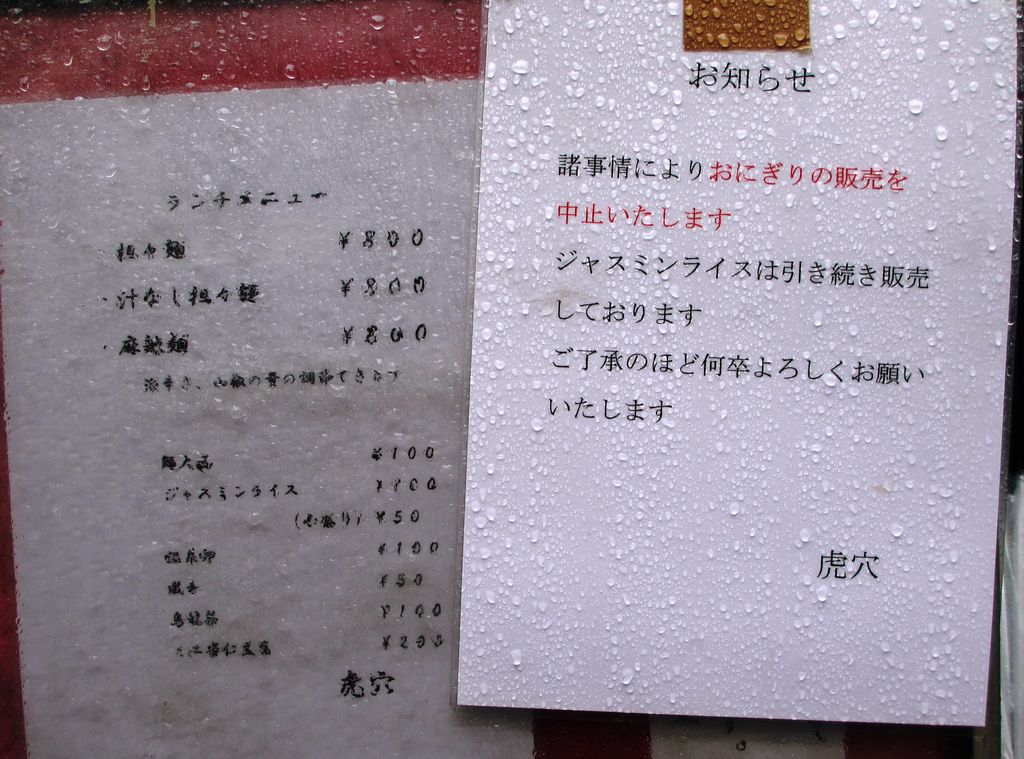 ランチメニュー
担々麺 ¥800
・汁なし担々麺 ¥800
・麻辣麺 ¥800
※辛さ、山椒の量の調節できます
麺大盛 ¥100
ジャスミンライス ¥100
(小盛り) ¥50
温泉卵 ¥100
¥50
烏龍茶 ¥100
杏仁豆腐 ¥200
虎穴
お知らせ
諸事情によりおにぎりの販売を
中止いたします
ジャスミンライスは引き続き販売
しております
ご了承のほど何卒よろしくお願い
いたします
虎穴